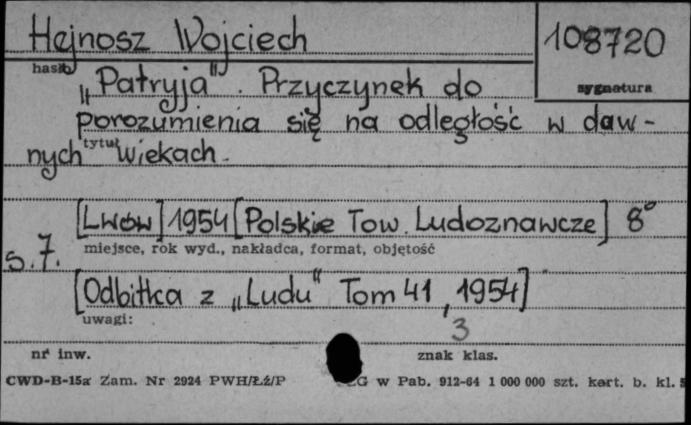 Hejnosz Wojciech
108720
hasło
sygnatura
„Patryja". Przyczynek do
porozumienia się na odległość w daw-
nych wiekach.
tytuł
[Lwów] 1954 [Polskie Tow. Ludoznawcze] 8°
s. 7.
miejsce, rok wyd., nakładca, format, objętość
[Odbitka z „Ludu" Tom 41, 1954]
uwagi:
3
nr inw.
znak klas.
CWD-B-15a Zam. Nr 2924 PWH/Łź/P
w Pab. 912-64 1 000 000 szt. kart. b. kl. 5